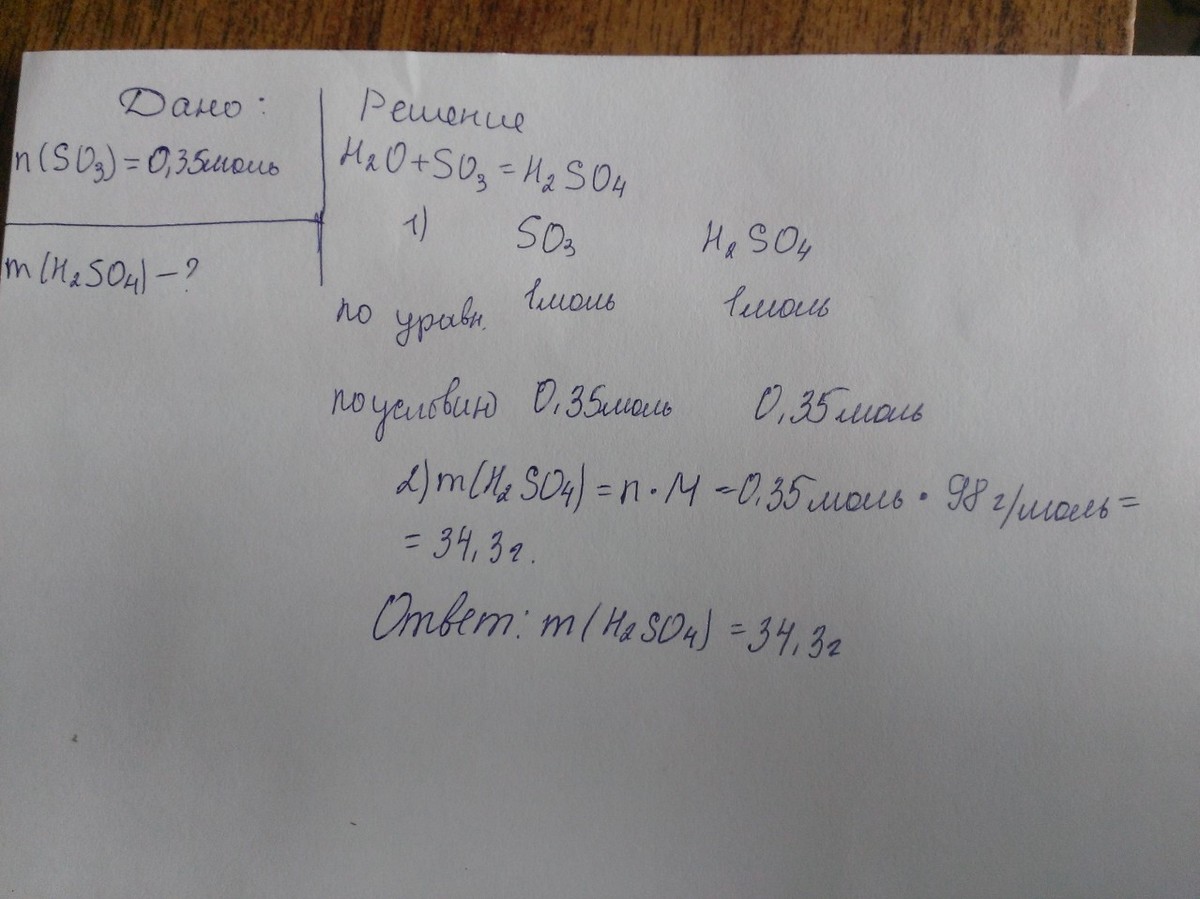 Дано:
n(SO₃)=0,35моль
m(H₂SO₄)–?
Решение
H₂O+SO₃=H₂SO₄
1) SO₃ H₂SO₄
по уравн. 1моль 1моль
по условию 0,35моль 0,35моль
2) m(H₂SO₄)=n·M=0,35моль·98г/моль=
=34,3г.
Ответ: m(H₂SO₄)=34,3г